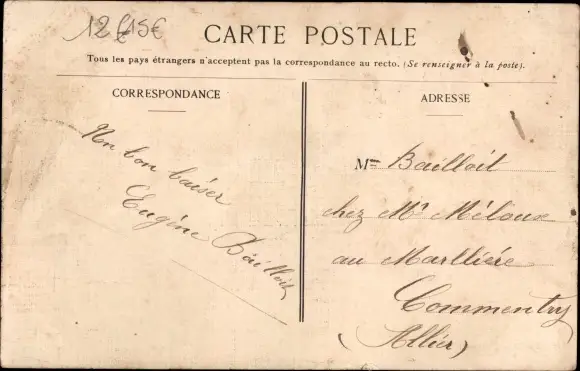 12€ 15€
CARTE POSTALE
Tous les pays étrangers n'acceptent pas la correspondance au recto. (Se renseigner à la poste).
CORRESPONDANCE
ADRESSE
Un bon baiser
Eugène Bailloit
Mme Bailloit
chez Mr Méloux
au Marllière
Commentry
(Allier)